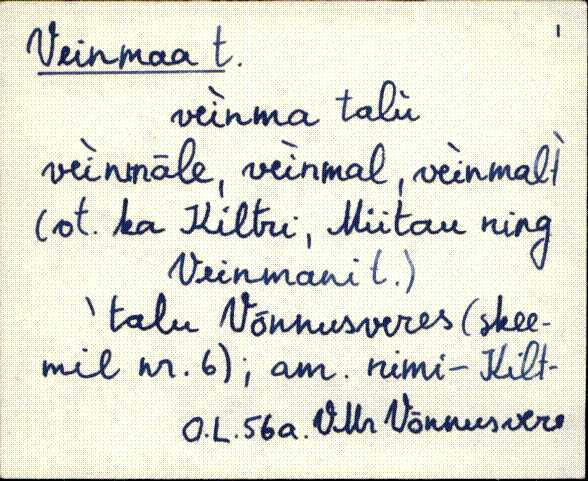 Veinmaa t.
vèinma talù
vèinmāle, vèinmal, vèinmalt̀
(vt. ka Kiltri, Miitau ning
Veinmani t.)
ˋtalu Võnnusveres (skee-
mil nr. 6); am. nimi - Kilt-
O.L. 56a. VMr Võnnusvere